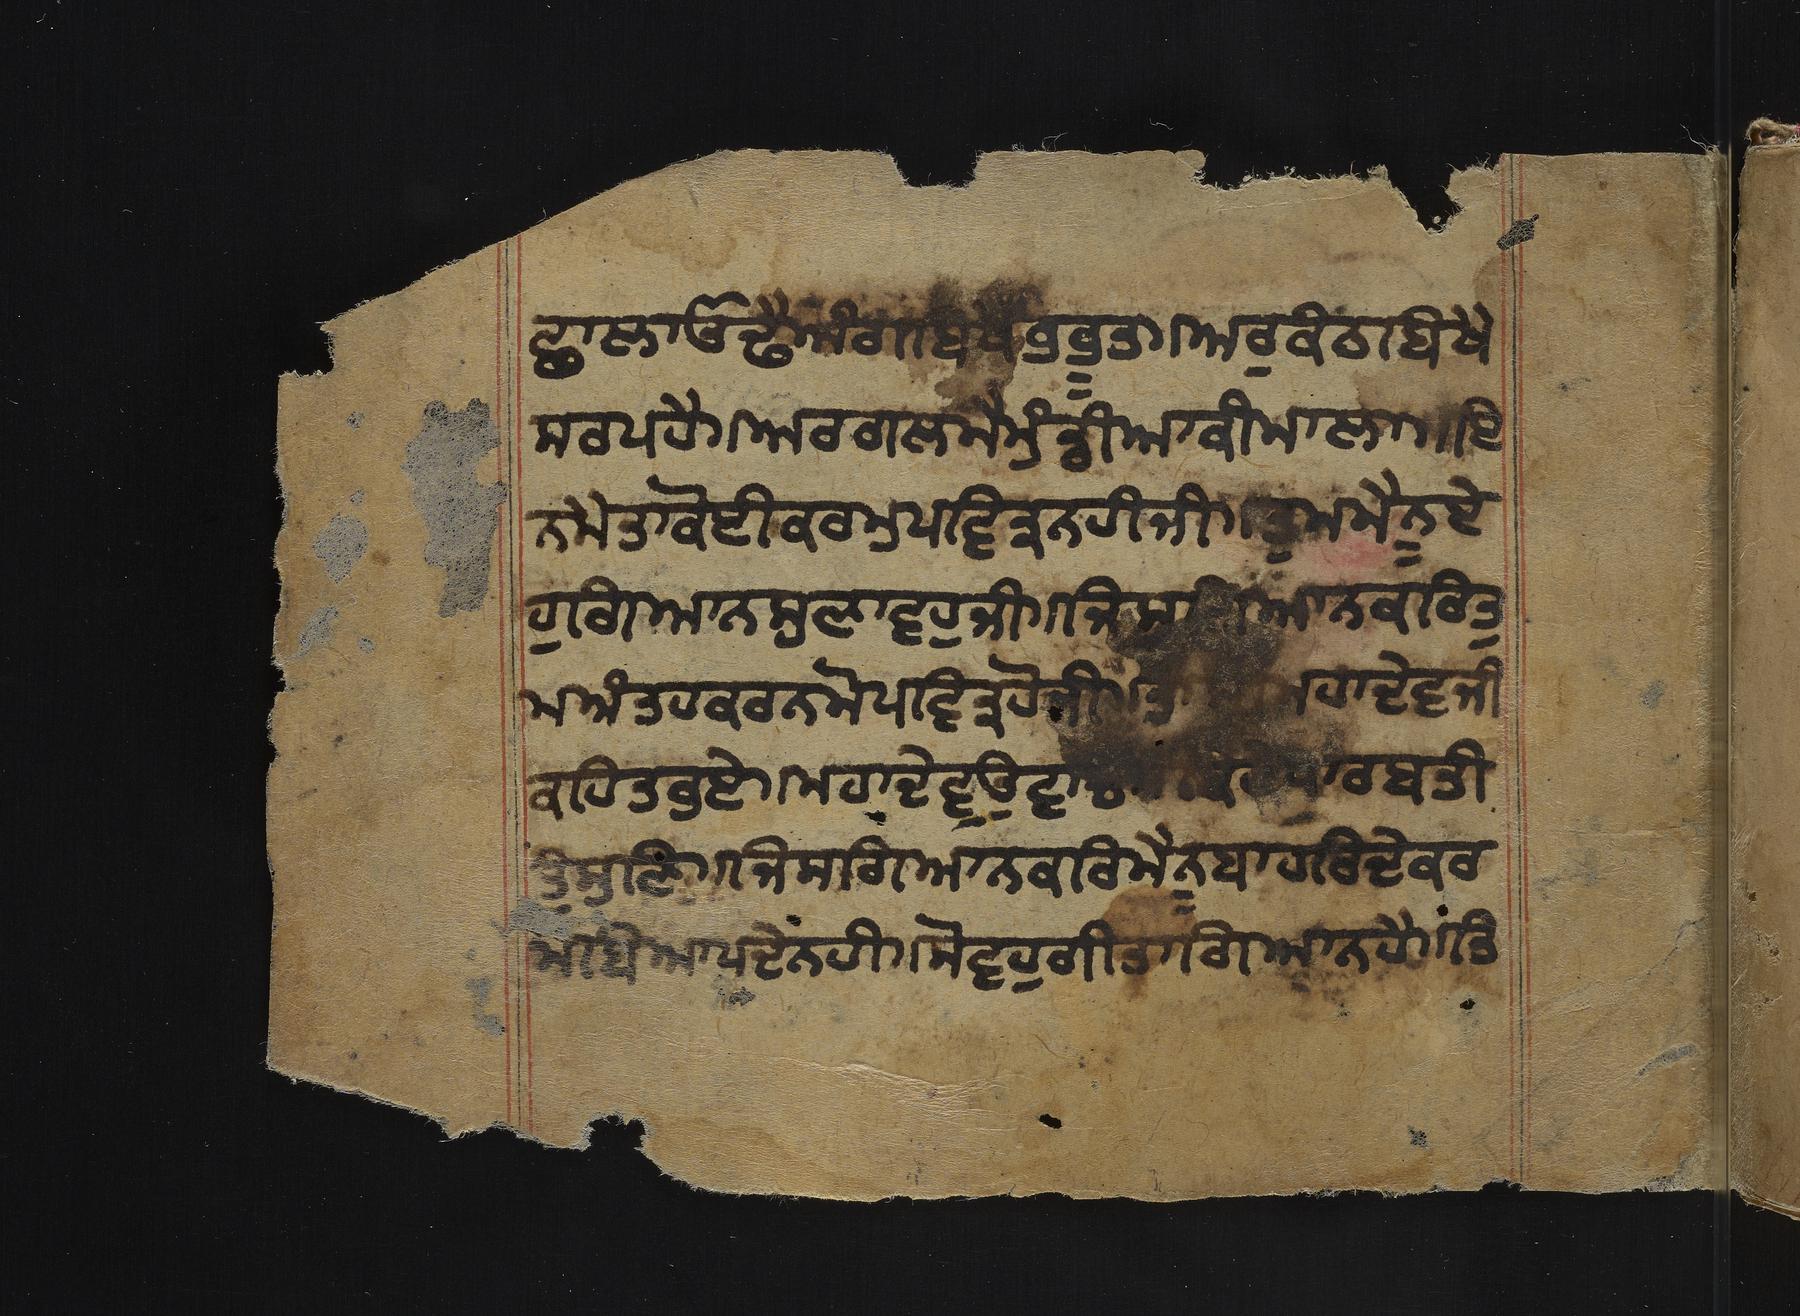 ਛਾਲਾਓਢੈਅੰਗਬਿਖੈਭਭੂਤ।ਅਰੁਕੰਠਬਿਖੈ
ਸਰਪਹੈ।ਅਰਗਲਮੈਮੁੰਡੀਆਕੀਮਾਲਾ।ਇ
ਨਮੈਤਾਕੋਈਕਰਮੁਪਵਿਤ੍ਰਨਹੀਜੀ।ਤੁਮਮੈਨੂਏ
ਹੁਗਿਆਨਸੁਣਾਵਹੁਜੀ।ਜਿਸ ਗਿਆਨਕਰਿਤੁ
ਮਅੰਤਹਕਰਨਮੋਪਵਿਤ੍ਰਹੋਜੀ। ਮਹਾਦੇਵਜੀ
ਕਹਿਤਭਏ।ਮਹਾਦੇਵਉਵਾਚ ਹੇਪਾਰਬਤੀ
ਤੂਸੁਣਿ।ਜਿਸਗਿਆਨਕਰਿਮੈਨੂਬਾਹਰਿਦੇਕਰ
ਮਬਿਆਪਦੇਨਹੀ।ਸੋਵਹੁਗੀਤਾਗਿਆਨਹੈ।ਤਿ